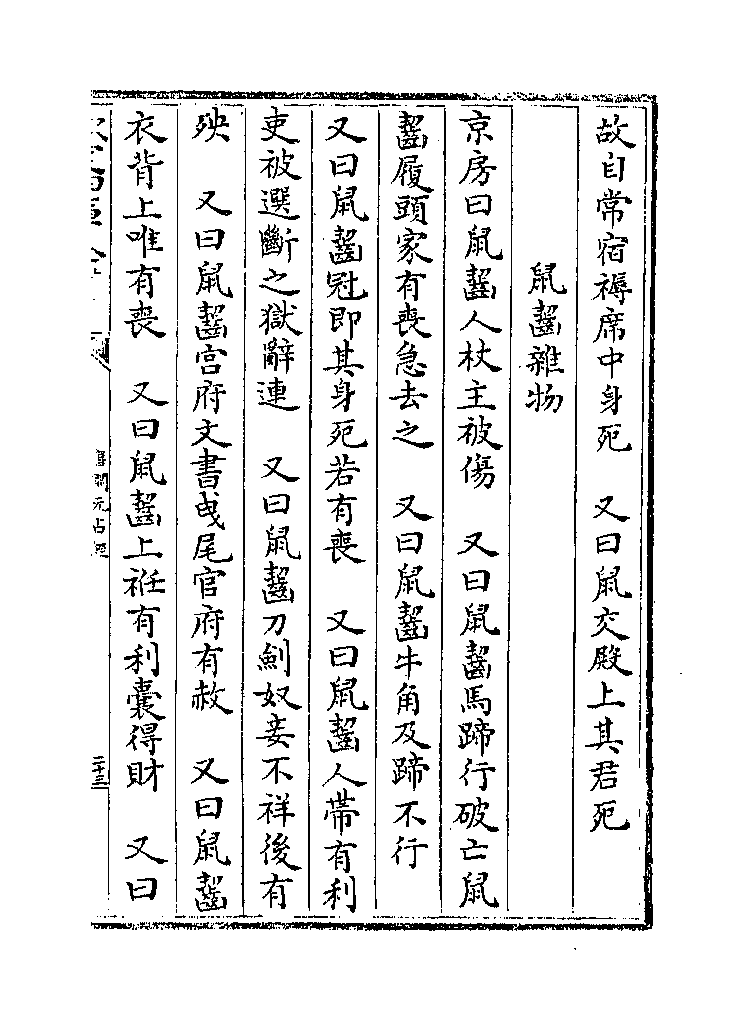 故自常宿褥席中身死　又曰鼠交殿上其君死
鼠齧雜物
京房曰鼠齧人杖主被傷　又曰鼠齧馬蹄行破亡鼠
齧履頭家有喪急去之　又曰鼠齧牛角及蹄不行
又曰鼠齧冠即其身死若有喪　又曰鼠齧人帶有利
吏被選斷之獄辭連　又曰鼠齧刀劍奴妾不祥後有
殃　又曰鼠齧宫府文書曵尾官府有赦　又曰鼠齧
衣背上唯有喪　又曰鼠齧上袵有利囊得財　又曰
唐開元占經
二十三